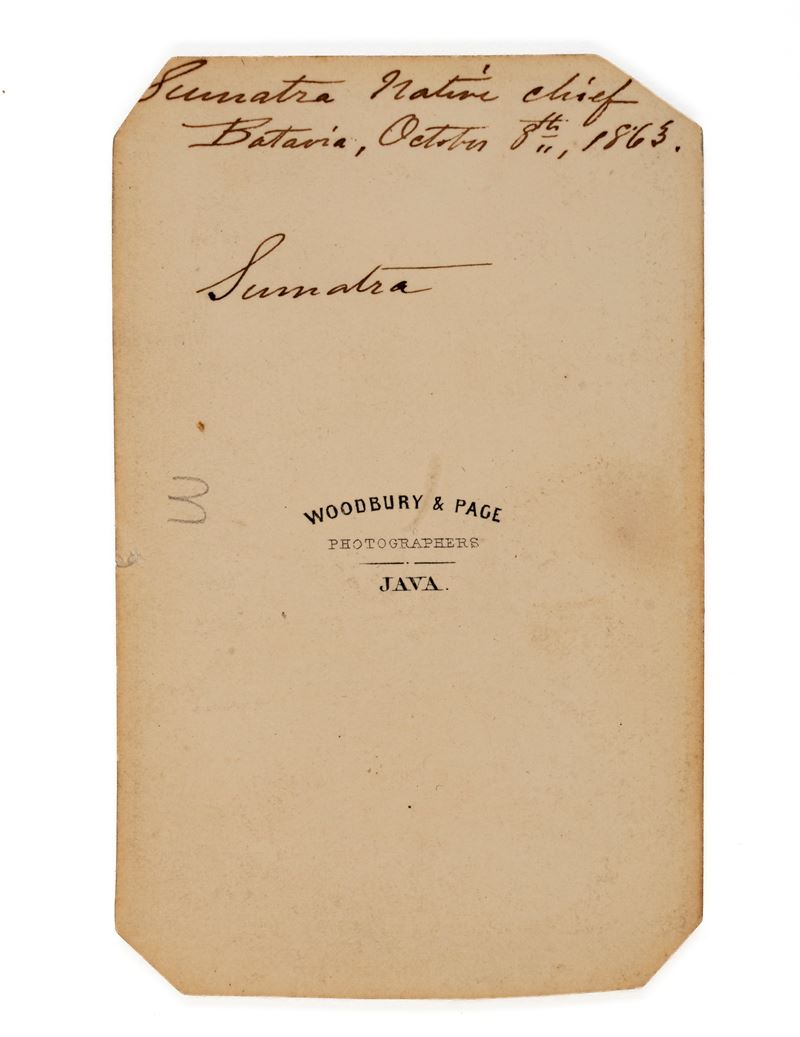 Sumatra Native chief
Batavia, October 8th, 1863.
Sumatra
3
WOODBURY & PAGE
PHOTOGRAPHERS
JAVA.